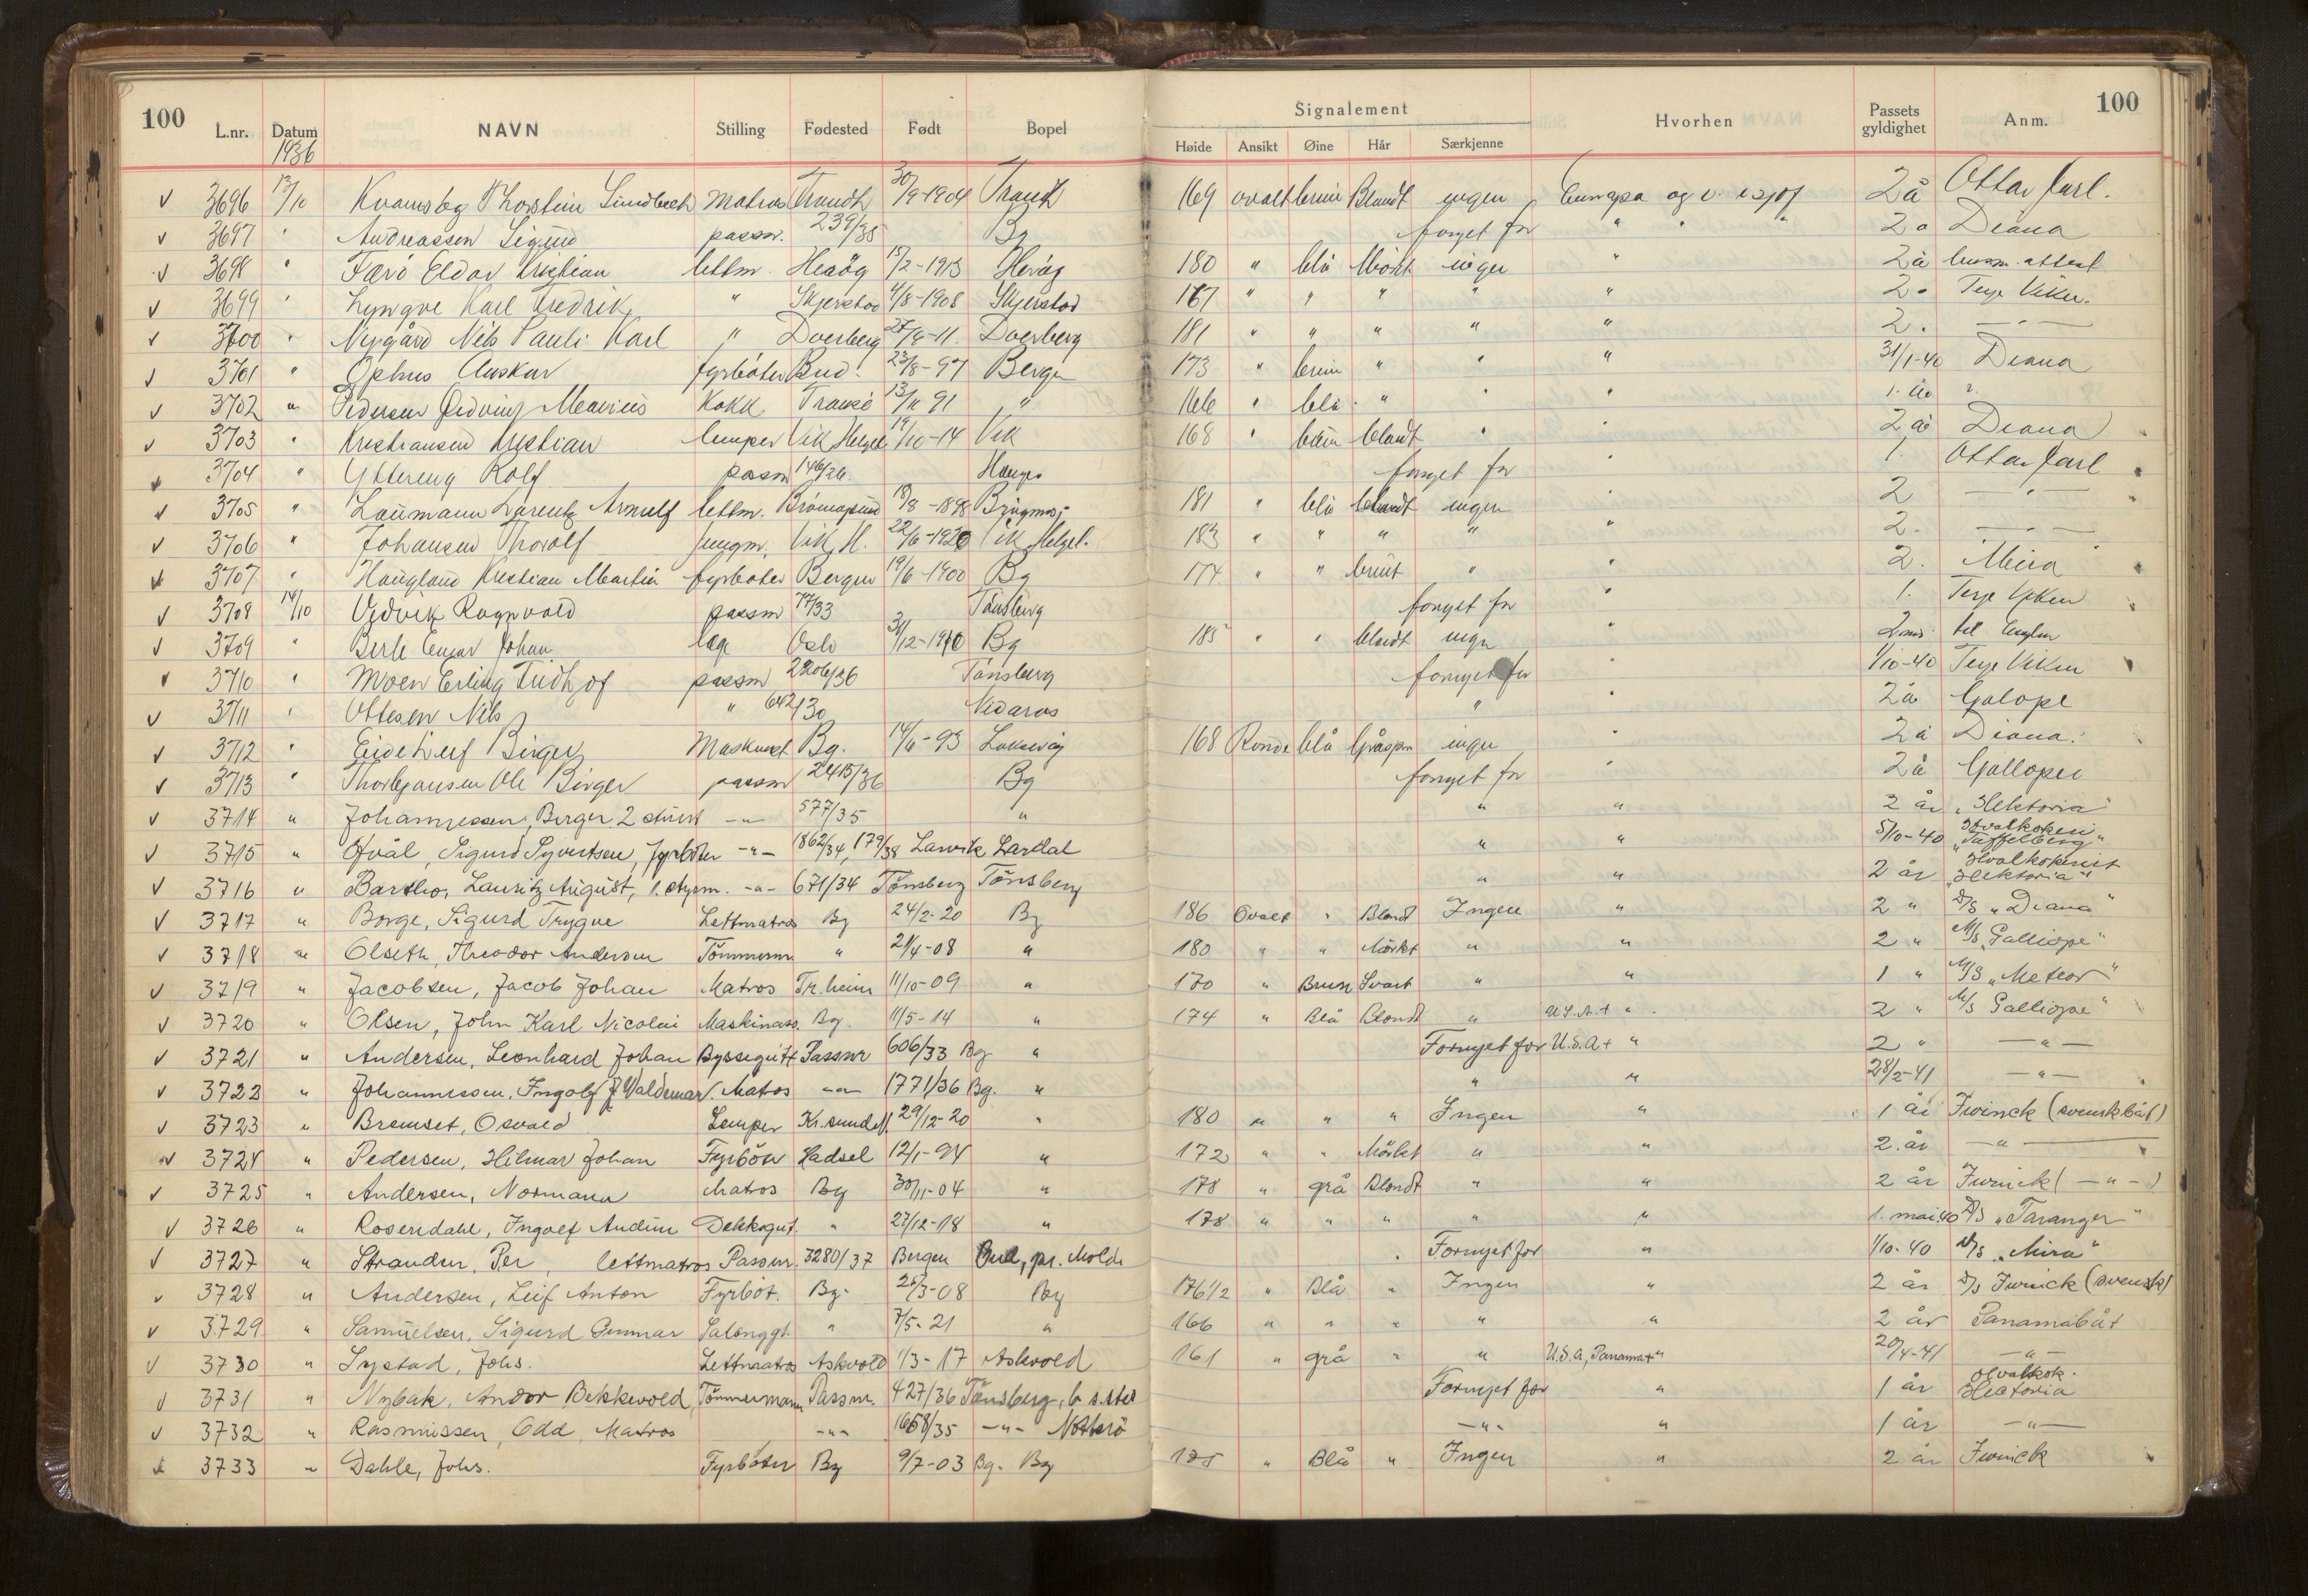 100 L.nr. Datum NAVN Stilling Fødested Født Bopel Signalement Hvorhen Passets gyldighet Anm. 100
1936 Høide Ansikt Øine Hår Særkjenne
v 3696 13/10 Kvamsøg Thorstein Lindbech Matros Trondh 30/9-1904 Trondh 169 ovalt brun Blondt ingen Europa og v. i sjøf 2 å Ottar Jarl.
v 3697 " Andreassen Sigurd passnr. 239/35 Bg fornyet for " " " 2 " Diana
v 3698 " Færö Eldar Kristian lettm. 15/2-1913 180 " blå Mörkt ingen " 2 å attest
v 3699 " Lyngve Karl Fredrik " Skjerstad 4/8-1908 Skjerstad 167 " " " " " 2 " Terje Viken.
v 3700 " Nygård Nils Pauli Karl " Dverberg 27/9-11. Dverberg 181 " " " " " 2. — " —
v 3701 " Ophus Anskar fyrböter Bud. 23/8-97 Bergen 173 " brun " " " 31/1-40 Diana
v 3702 " Pedersen Mevius Kokk Tromsö 13/11 91 " 166 " blå " " " 1. år "
v 3703 " Kristiansen Kristian lemper Vik Helgel. 19/10-14 Vik 168 " brun blondt " " 2 år Diana
v 3704 " Yttereng Rolf passnr 146/26. fornyet for " 1. Ottar Jarl
v 3705 " Laumann Lorentz Arnulf lettm. Brönnøysund 18/8-1898 181 " blå blondt ingen " 2 — " —
v 3706 " Johansen Thorolf jungm. Vik H. 22/6-1920 Vik Helgel. 183 " " " " " 2. — " —
v 3707 " Haugland Kristian Martin fyrböter Bergen 19/6-1900 Bg 174 " " brunt " " 2. "Mira"
v 3708 14/10 Vedvik Ragnvald passnr 77/33 Tönsberg fornyet for " 1. Terje Viken
v 3709 " Berle Einar Johan Oslo 31/12-1910 Bg 185 " " blondt ingen " 2 mnd. til England
v 3710 " Moen Erling Fridtjof passnr 2206/36 Tönsberg fornyet for " 1/10-40 Terje Viken
v 3711 " Ottesen Nils " 642/30 " " 2 å Galope
v 3712 " Eide Leif Birger Maskinist Bg. 14/6-93 Laksevåg 168 Runde blå Gråspr. ingen " 2 å Diana.
v 3713 " Thorbjørnsen Ole Birger passnr 2415/36 Bg fornyet for " 2 å Galloper
v 3714 " Johannessen, Birger 2 stuert -"- 577/35 " " " 2 år "Hektoria"
v 3715 " Hvål, Sigurd Syvertsen, Fyrböter -"- 1862/34, 179/38 Larvik Lardal " " 5/10-40 Hvalkokeri "Taffelberg"
v 3716 " Bartho, Lauritz August, 1. styrm. -"- 671/34 Tönsberg Tönsberg " " 2 år Hvalkokeriet "Hektoria"
v 3717 " Borge, Sigurd Trygve Lettmatros Bg 24/2-20 Bg 186 Ovalt " Blondt Ingen " 2 " D/S "Diana"
v 3718 " Olseth, Theodor Andersen Tömmerm. " 21/4-08 " 180 " " Mörkt " " 2 " M/S "Calliope"
v 3719 " Jacobsen, Jacob Johan Matros Tr.heim 11/10-09 " 170 " Brun Svart " " 1 " M/S "Meteor"
v 3720 " Olsen, John Karl Nicolai Maskinass. Bg. 11/5-14 " 174 " Blå Blondt " U.S.A. + " 2 " M/S Calliope"
v 3721 " Andersen, Leonhard Johan Byssegutt Passnr 606/33 Bg " Fornyet for U.S.A + " 2 " — " —
v 3722 " Johannessen, Ingolf J Valdemar Matros -"- 1771/36 Bg. " " " 28/2-41 — " —
v 3723 " Bremset, Osvald Lemper Kr.sund N 29/12-20 " 180 " " " Ingen " 1 år Iwinck (svensk båt)
v 3724 " Pedersen, Hilmar Johan Fyrböter Hadsel 12/1-94 " 172 " " Mörkt " " 2. år — " —
v 3725 " Andersen, Normann Matros Bg 30/11-04 " 178 " grå Blondt " " 2 år Iwinck ( — " — )
v 3726 " Rosendahl, Ingolf Audun Dekksgut. " 27/12-18 " 178 " " " " " 1. mai 40 D/S "Taranger"
v 3727 " Stranden, Per, lettmatros Passnr. 3280/37 Bergen Bud, pr. Molde " Fornyet for " 1/10-40 D/S "Mira"
v 3728 " Andersen, Leif Anton Fyrböt. Bg. 21/3-08 Bg 176 1/2 " Blå " Ingen " 2 år D/S Iwinck (svensk)
v 3729 " Samuelsen, Sigurd Gunnar Salonggt. " 7/5-21 " 166 " " " " " 2 år Panamabåt
v 3730 " Systad, Johs. Lettmatros Askvold 1/3-17 Askvold 161 " grå " " U.S.A, Panama + " 20/4-41 — " —
v 3731 " Nybak, Andor Bekkevold, Tömmermann Passnr. 427/36 Tönsberg, Fornyet for " 1 år Hvalkok. Hectoria
v 3732 " Rasmussen, Odd, Matros -"- 1658/35 -"- Nötterö -"- " 1 år — " —
v 3733 " Dahle, Johs. Fyrböter Bg 9/7-03 Bg. Bg 175 " Blå " Ingen " 2 år Iwinck